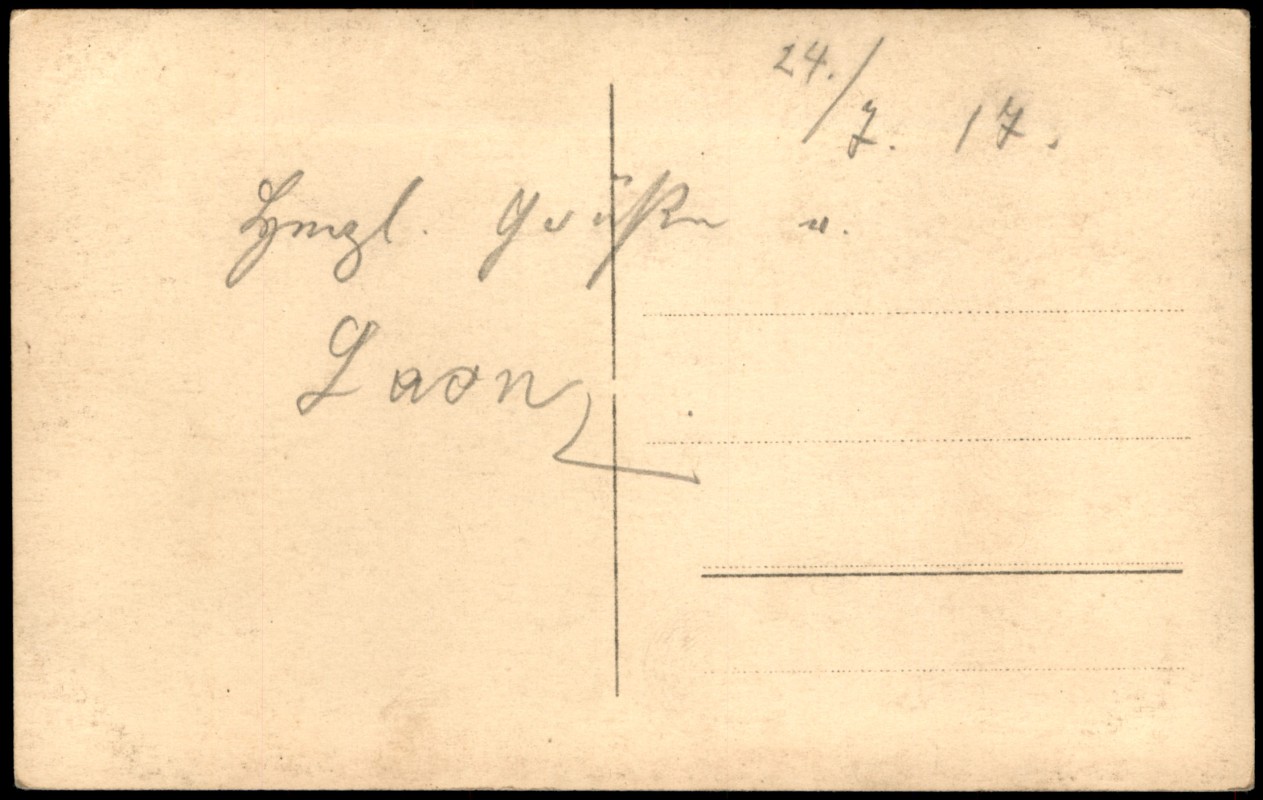 24./7. 17.
Herzl. Grüße v.
Laon